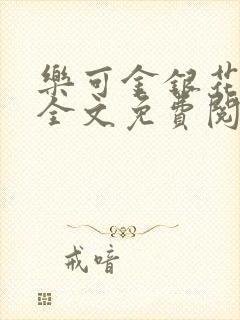 樂可金銀花
全文免費閱
戒喑